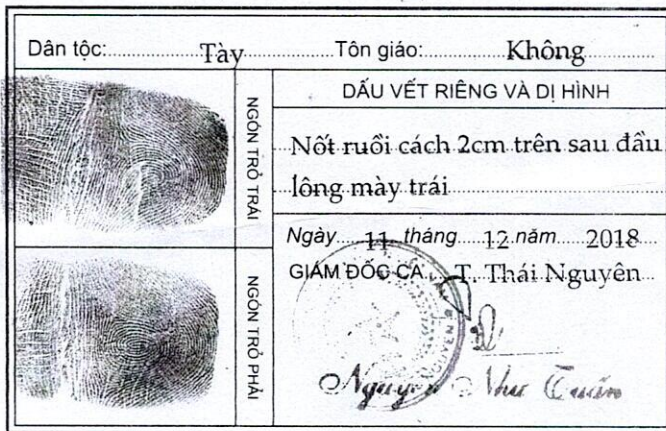 Dân tộc: Tày Tôn giáo: Không
NGÓN TRỎ TRÁI
DẤU VẾT RIÊNG VÀ DỊ HÌNH
Nốt ruồi cách 2cm trên sau đầu
lông mày trái
Ngày 11 tháng 12 năm 2018
GIÁM ĐỐC CA T. Thái Nguyên
NGÓN TRỎ PHẢI
Nguyễn Như Tuấn